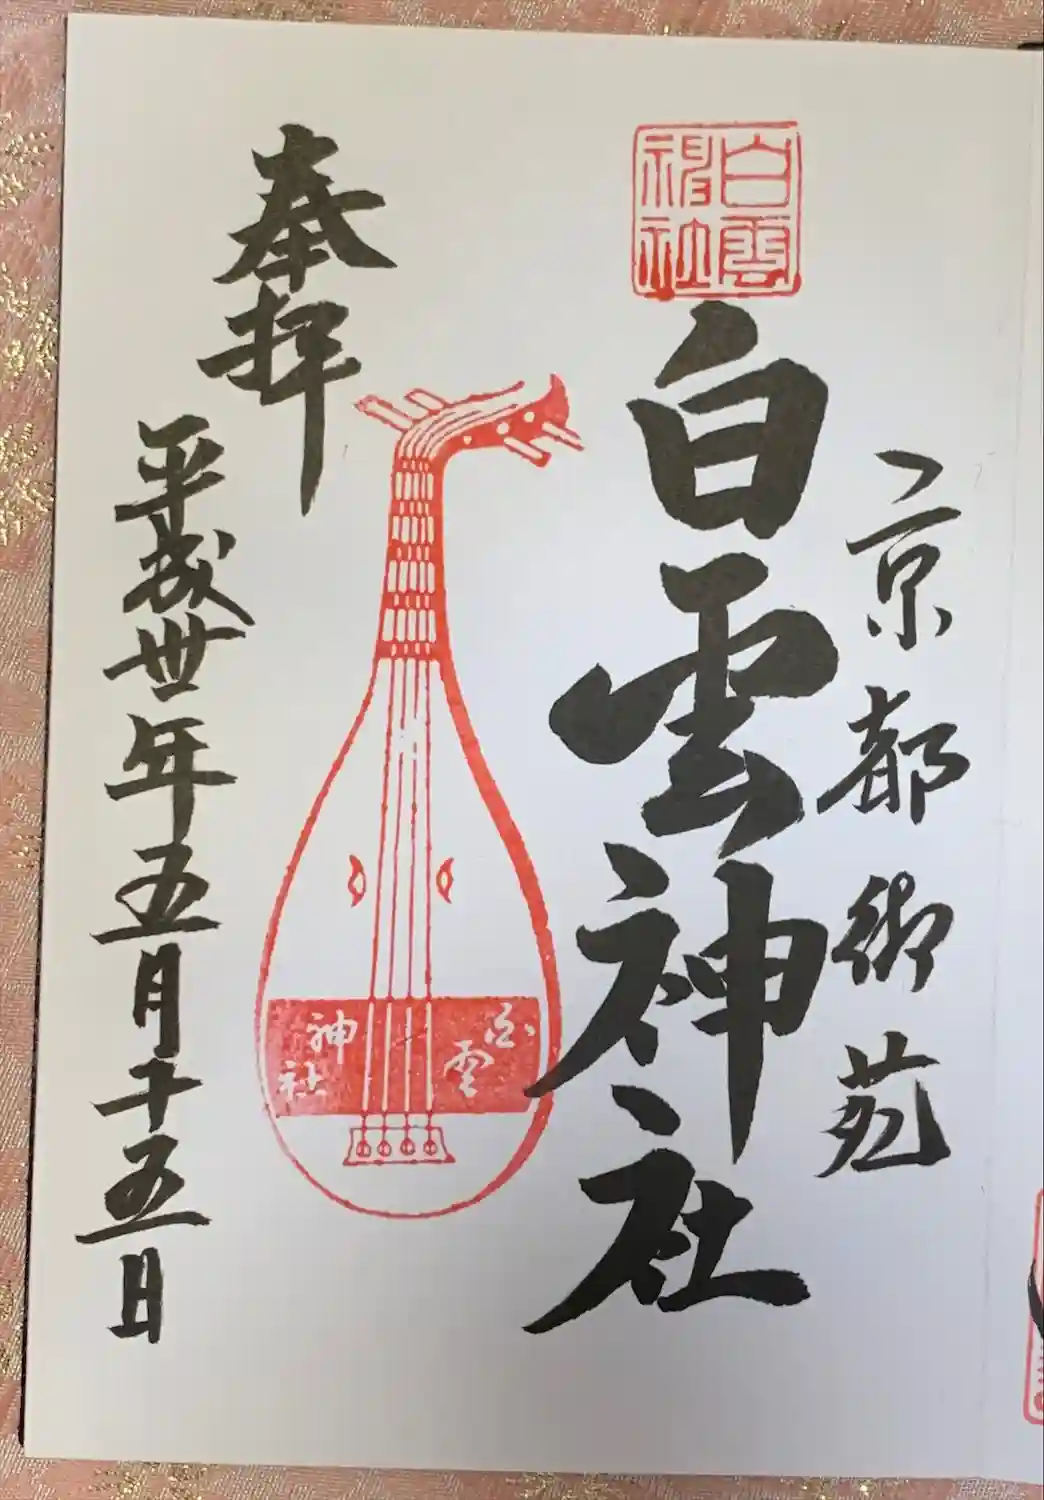 京都御苑
白雲神社
白雲神社
白雲
神社
奉拝
平成丗年五月十五日